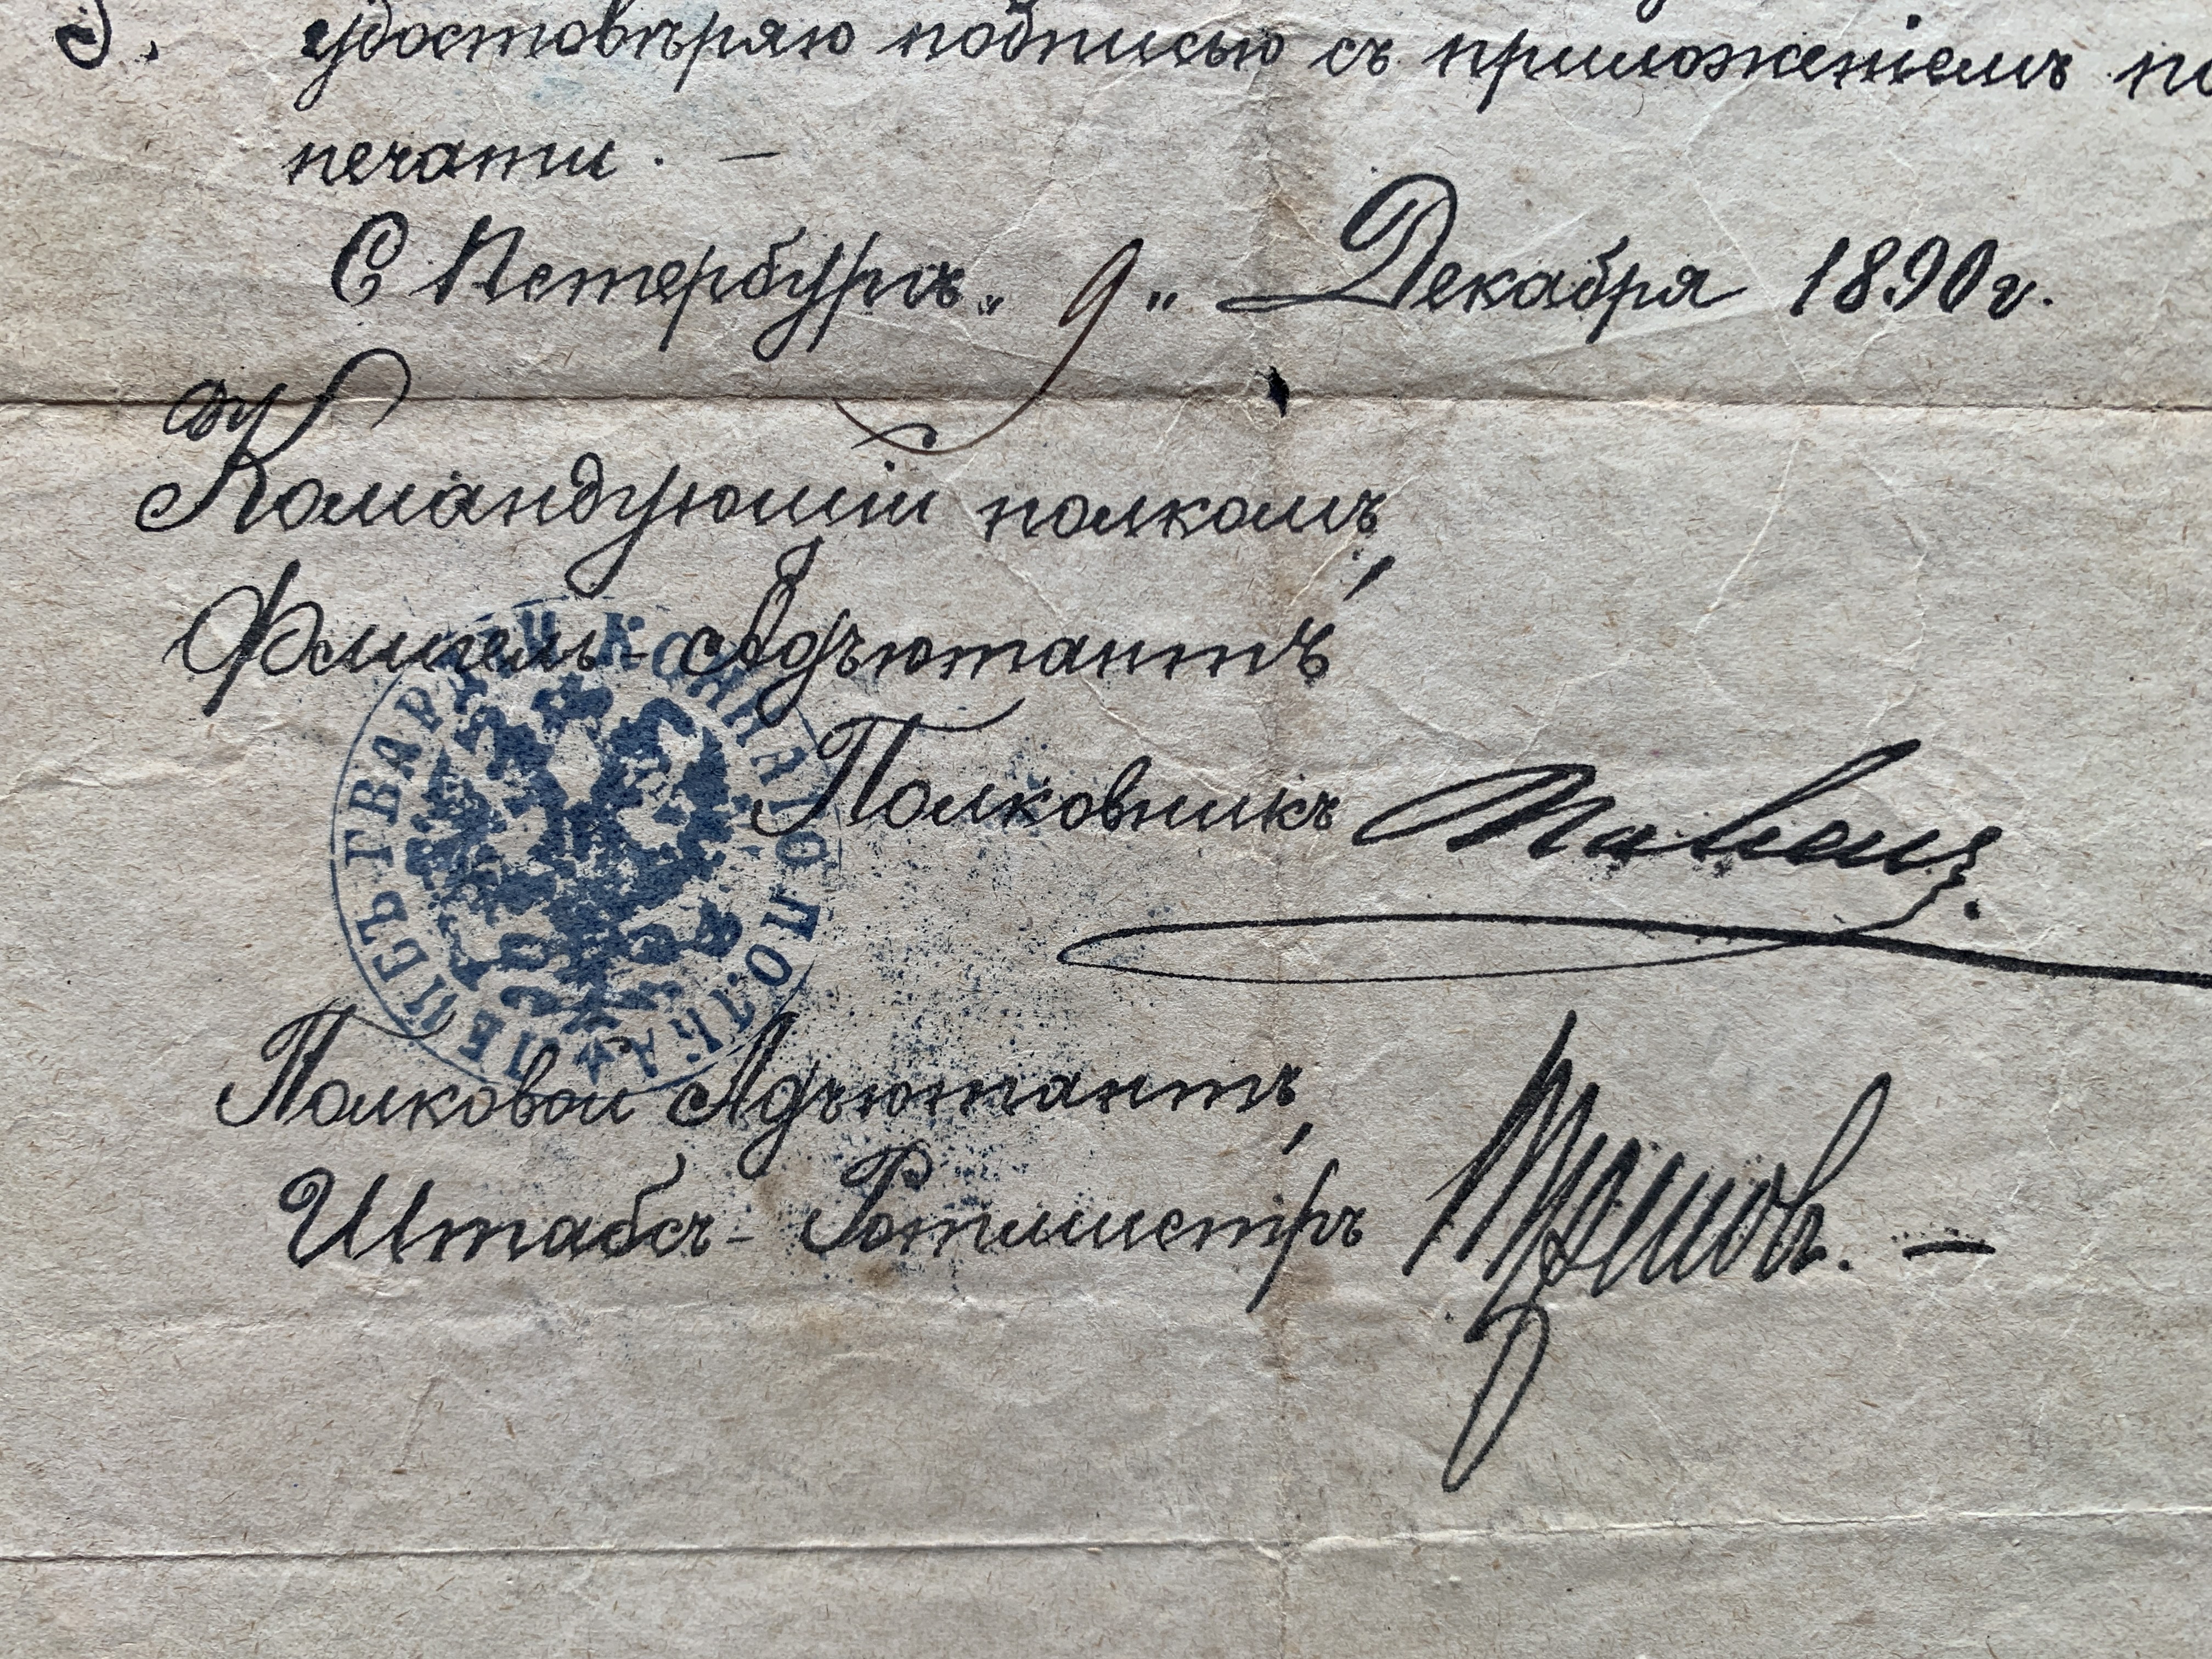 удостовѣряю подписью съ приложеніемъ
печати. —
С Петербургъ „ 9 " Декабря 1890 г.
Командующій полкомъ,
Флигель-Адъютантъ
Полковникъ
ЛЕЙБЪ ГВАРДІИ КОННАГО ПОЛКА
Полковой Адъютантъ,
Штабсъ-Ротмистръ